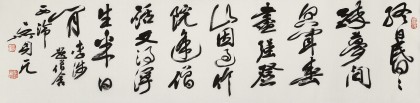 終日昏〻
醉夢間
忽聞春
盡強登
山因過竹
院逢僧
話又得浮
生半日
閒 李涉